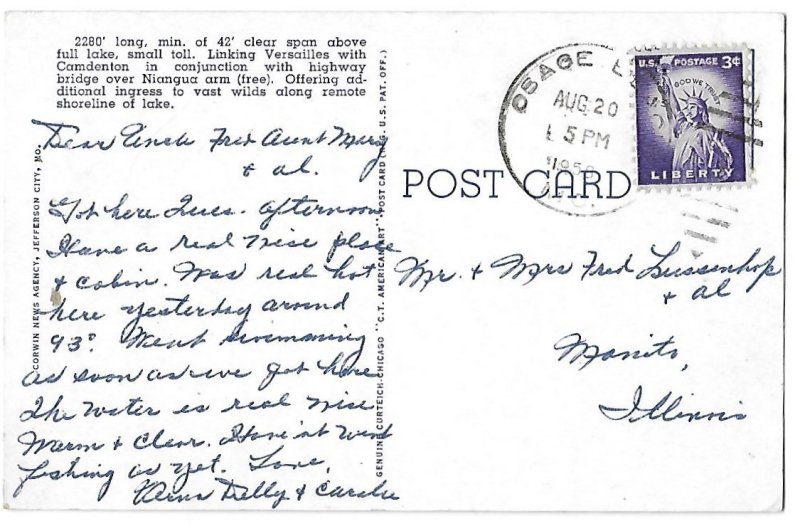 2280' long, min. of 42' clear span above
full lake, small toll. Linking Versailles with
Camdenton in conjunction with highway
bridge over Niangua arm (free). Offering ad-
ditional ingress to vast wilds along remote
shoreline of lake.
Dear Uncle Fred Aunt Mary
+ al.
Got here Tues. afternoon
Have a real nise place
+ cabin. Was real hot
here yesterday around
93°. Went swimming
as soon as we got here
The water is real nise.
Warm + Clear. Have'nt went
fishing as yet. Love,
Verna Delly +
CORWIN NEWS AGENCY, JEFFERSON CITY, MO.
GENUINE CURTEICH-CHICAGO "C.T. AMERICAN ART" POST CARD (REG. U.S. PAT. OFF.)
POST CARD
OSAGE
AUG 20
5 PM
U.S. POSTAGE 3¢
IN GOD WE TRUST
LIBERTY
Mr. + Mrs Fred Lussenhop
+ al
Manito,
Illinois